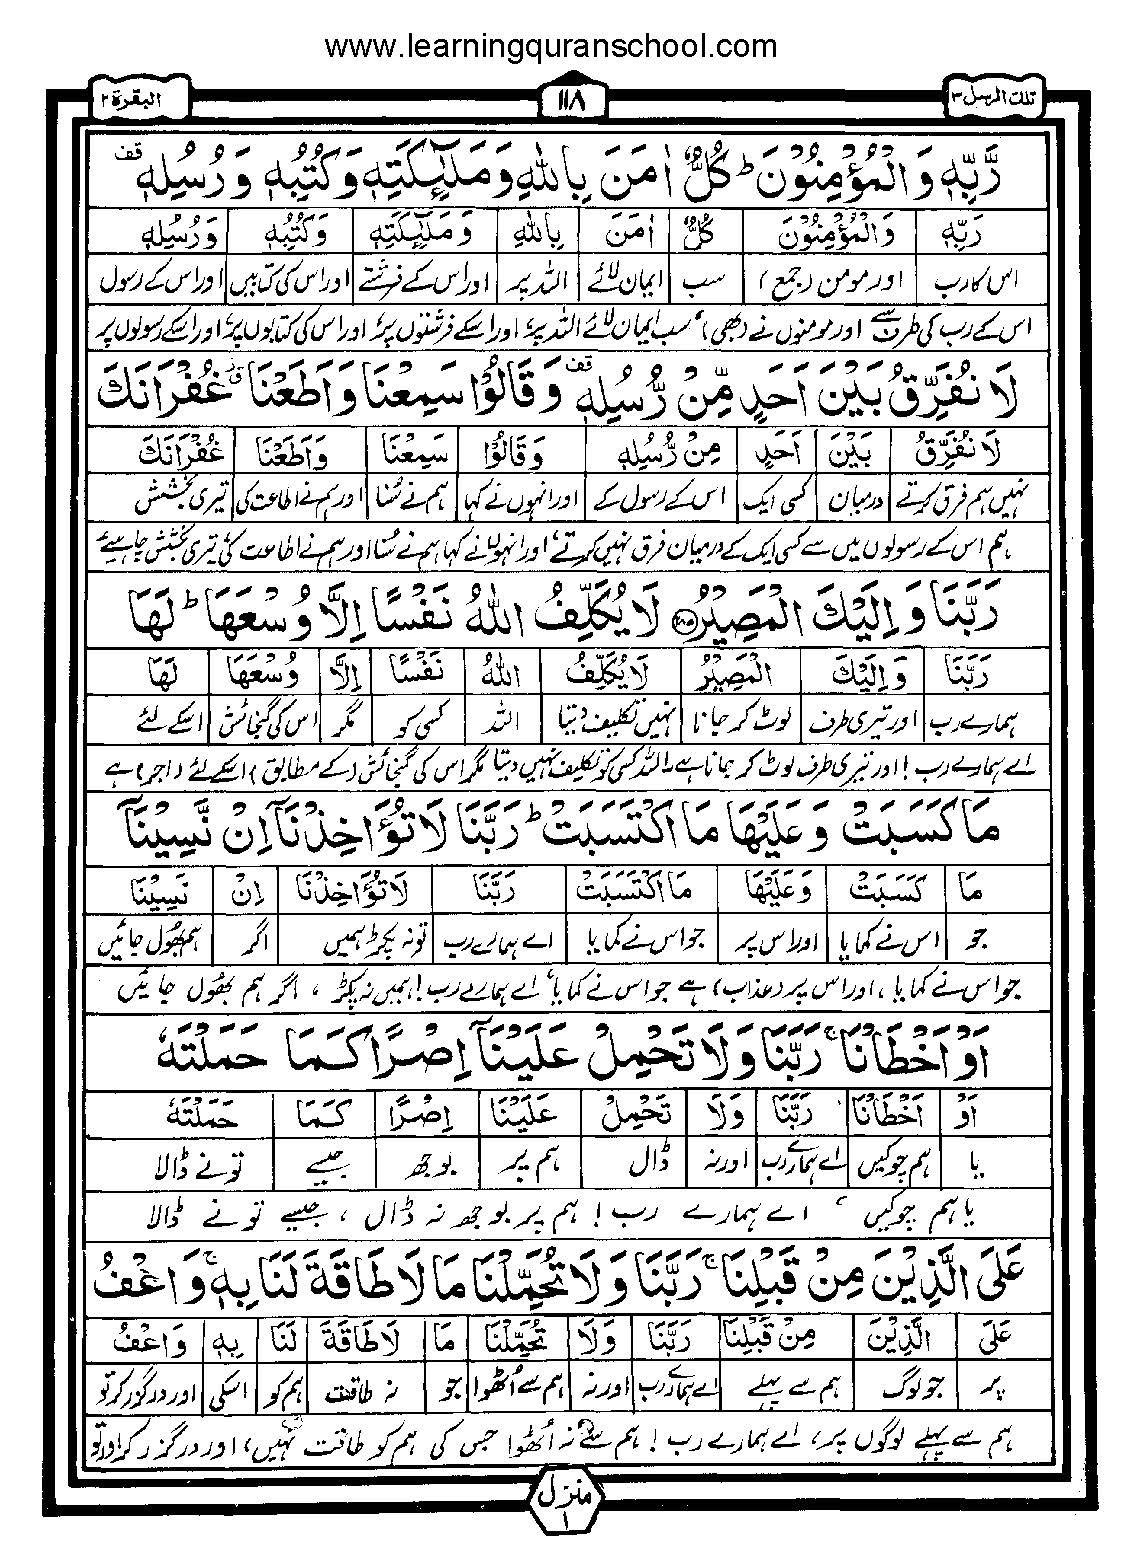 www.learningquranschool.com
تلك الرسل ٣ ١١٨ البقرة ٢
رَّبِّهٖ وَالْمُؤْمِنُوْنَ ؕ كُلٌّ اٰمَنَ بِاللّٰهِ وَمَلٰٓئِكَتِهٖ وَكُتُبِهٖ وَرُسُلِهٖ قف
رَبِّهٖ وَالْمُؤْمِنُوْنَ كُلٌّ اٰمَنَ بِاللّٰهِ وَمَلٰٓئِكَتِهٖ وَكُتُبِهٖ وَرُسُلِهٖ
اس کا رب اور مومن (جمع) سب ایمان لائے اللہ پر اور اس کے فرشتے اور اس کی کتابیں اور اس کے رسول
اس کے رب کی طرف سے اور مومنوں نے (بھی)، سب ایمان لائے اللہ پر، اور اسکے فرشتوں پر، اور اس کی کتابوں پر، اور اسکے رسولوں پر
لَا نُفَرِّقُ بَيْنَ اَحَدٍ مِّنْ رُّسُلِهٖ قف وَقَالُوْا سَمِعْنَا وَاَطَعْنَا غُفْرَانَكَ
لَا نُفَرِّقُ بَيْنَ اَحَدٍ مِنْ رُّسُلِهٖ وَقَالُوْا سَمِعْنَا وَاَطَعْنَا غُفْرَانَكَ
نہیں ہم فرق کرتے درمیان کسی ایک اس کے رسول کے اور انہوں نے کہا ہم نے سُنا اور ہم نے اطاعت کی تیری بخشش
ہم اس کے رسولوں میں سے کسی ایک کے درمیان فرق نہیں کرتے، اور انہوں نے کہا ہم نے سُنا اور ہم نے اطاعت کی، تیری بخشش چاہیے
رَبَّنَا وَاِلَيْكَ الْمَصِيْرُ ۲۸۵ لَا يُكَلِّفُ اللّٰهُ نَفْسًا اِلَّا وُسْعَهَا ؕ لَهَا
رَبَّنَا وَاِلَيْكَ الْمَصِيْرُ لَا يُكَلِّفُ اللّٰهُ نَفْسًا اِلَّا وُسْعَهَا لَهَا
ہمارے رب اور تیری طرف لوٹ کر جانا نہیں تکلیف دیتا اللہ کسی کو مگر اس کی گنجائش اسکے لئے
اے ہمارے رب! اور تیری طرف لوٹ کر جانا ہے۔ اللہ کسی کو تکلیف نہیں دیتا مگر اس کی گنجائش (کے مطابق) اسکے لئے (اجر) ہے
مَا كَسَبَتْ وَعَلَيْهَا مَا اكْتَسَبَتْ ؕ رَبَّنَا لَا تُؤَاخِذْنَآ اِنْ نَّسِيْنَآ
مَا كَسَبَتْ وَعَلَيْهَا مَا اكْتَسَبَتْ رَبَّنَا لَا تُؤَاخِذْنَا اِنْ نَسِيْنَا
جو اس نے کمایا اور اس پر جو اس نے کمایا اے ہمارے رب تو نہ پکڑ ہمیں اگر ہم بھول جائیں
جو اس نے کمایا، اور اس پر (عذاب) ہے جو اس نے کمایا، اے ہمارے رب! ہمیں نہ پکڑ، اگر ہم بھول جائیں
اَوْ اَخْطَاْنَا ۚ رَبَّنَا وَلَا تَحْمِلْ عَلَيْنَآ اِصْرًا كَمَا حَمَلْتَهٗ
اَوْ اَخْطَاْنَا رَبَّنَا وَلَا تَحْمِلْ عَلَيْنَا اِصْرًا كَمَا حَمَلْتَهٗ
یا ہم چوکیں اے ہمارے رب اور نہ ڈال ہم پر بوجھ جیسے تو نے ڈالا
یا ہم چوکیں، اے ہمارے رب! ہم پر بوجھ نہ ڈال، جیسے تو نے ڈالا
عَلَى الَّذِيْنَ مِنْ قَبْلِنَا ۚ رَبَّنَا وَلَا تُحَمِّلْنَا مَا لَا طَاقَةَ لَنَا بِهٖ ۚ وَاعْفُ
عَلَى الَّذِيْنَ مِنْ قَبْلِنَا رَبَّنَا وَلَا تُحَمِّلْنَا مَا لَا طَاقَةَ لَنَا بِهٖ وَاعْفُ
پر جو لوگ ہم سے پہلے اے ہمارے رب اور نہ ہم سے اُٹھوا جو نہ طاقت ہم کو اسکی اور درگزر کر تو
ہم سے پہلے لوگوں پر، اے ہمارے رب! ہم سے نہ اُٹھوا جس کی ہم کو طاقت نہیں، اور درگزر کر تو
منزل ١